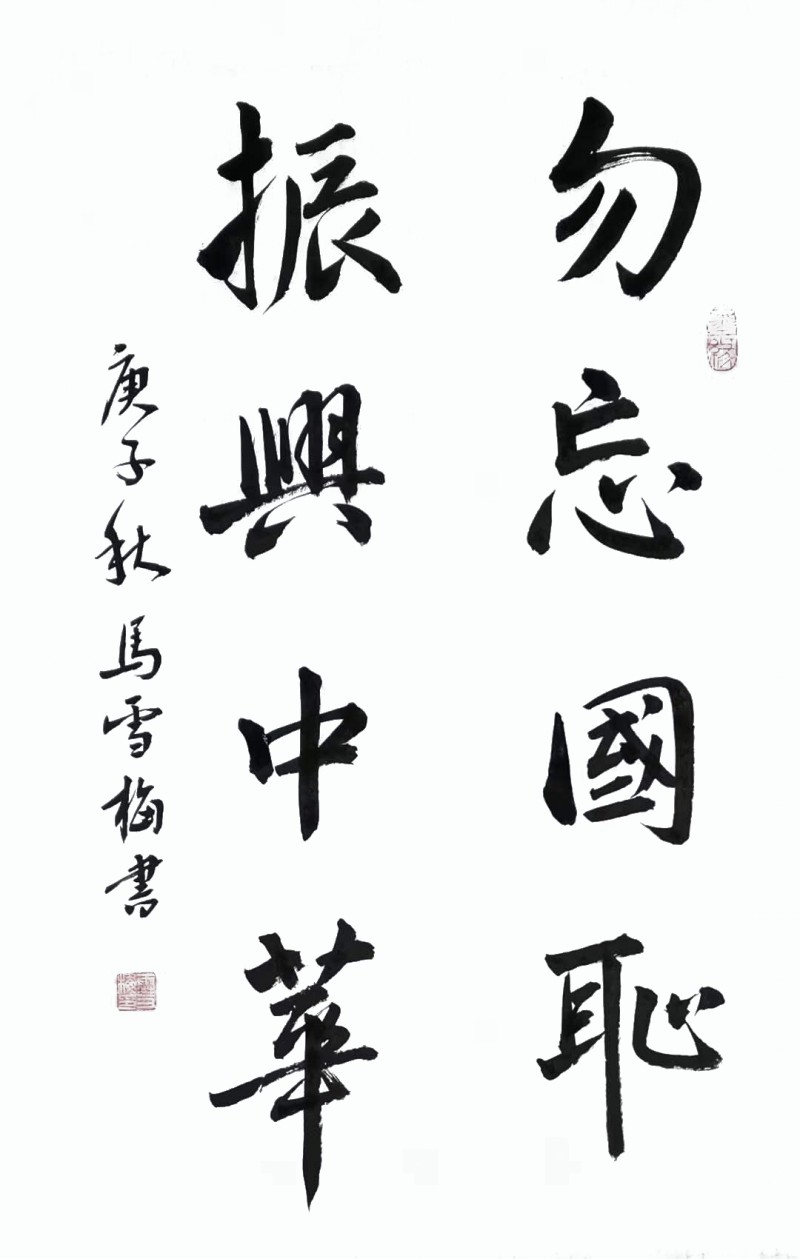 勿忘國恥
振興中華
庚子秋馬雪梅書